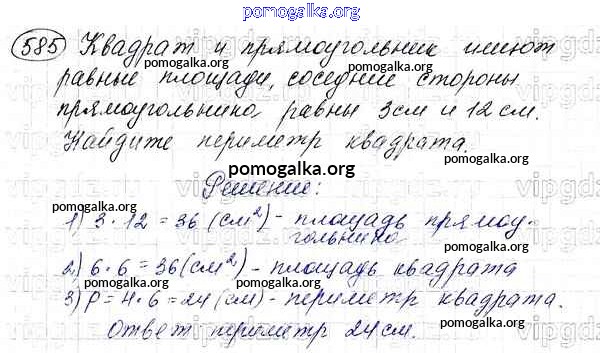 pomogalka.org
585 Квадрат и прямоугольник имеют
pomogalka.org
равные площади, соседние стороны
прямоугольника равны 3см и 12 см.
pomogalka.org
Найдите периметр квадрата.
pomogalka.org
Решение:
pomogalka.org
1) 3 · 12 = 36 (см²) - площадь прямоу-
гольника
pomogalka.org
2) 6 · 6 = 36 (см²) - площадь квадрата
pomogalka.org
3) P = 4 · 6 = 24 (см) - периметр квадрата.
pomogalka.org
Ответ: периметр 24 см.